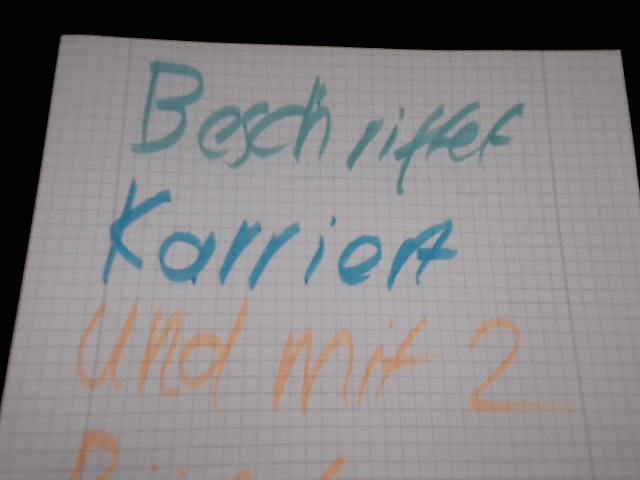 Beschriffet
Karriert
und mit 2